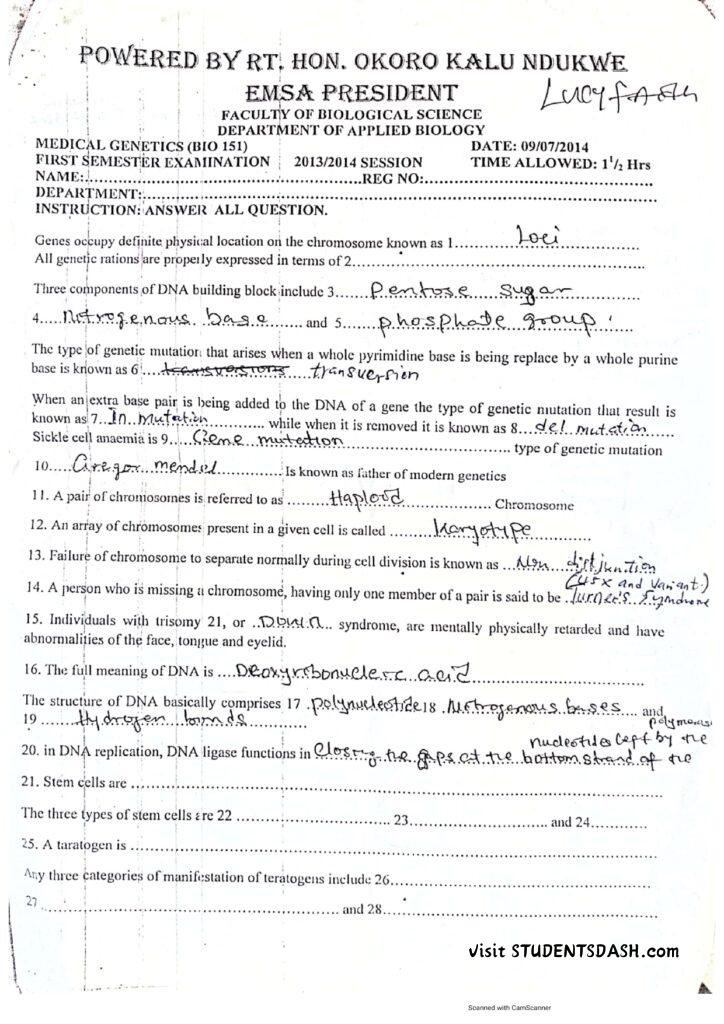 POWERED BY RT. HON. OKORO KALU NDUKWE
EMSA PRESIDENT
FACULTY OF BIOLOGICAL SCIENCE
DEPARTMENT OF APPLIED BIOLOGY
MEDICAL GENETICS (BIO 151) DATE: 09/07/2014
FIRST SEMESTER EXAMINATION 2013/2014 SESSION TIME ALLOWED: 1 1/2 Hrs
NAME:..........REG NO:..........
DEPARTMENT:..........
INSTRUCTION: ANSWER ALL QUESTION.
Genes occupy definite physical location on the chromosome known as 1..... Loci
All genetic rations are properly expressed in terms of 2..........
Three components of DNA building block include 3..... Pentose sugar
4..... Nitrogenous base ..... and 5..... phosphate group
The type of genetic mutation that arises when a whole pyrimidine base is being replace by a whole purine
base is known as 6..... transversion
When an extra base pair is being added to the DNA of a gene the type of genetic mutation that result is
known as 7..In mutation.......... while when it is removed it is known as 8.....del mutation....
Sickle cell anaemia is 9.....Gene mutation.......... type of genetic mutation
10.....Gregor mendel..........Is known as father of modern genetics
11. A pair of chromosomes is referred to as ..........Haploid.......... Chromosome
12. An array of chromosomes present in a given cell is called ..........Karyotype
13. Failure of chromosome to separate normally during cell division is known as ...Non disjunction
(45X and variant)
14. A person who is missing a chromosome, having only one member of a pair is said to be .Turner's syndrome
15. Individuals with trisomy 21, or ..DOWN.. syndrome, are mentally physically retarded and have
abnormalities of the face, tongue and eyelid.
16. The full meaning of DNA is ....Deoxyribonucleic acid
The structure of DNA basically comprises 17 .polynucleotide 18 .Nitrogenous bases.... and
19 ....Hydrogen bonds..........
nucleotides left by the polymerase
20. in DNA replication, DNA ligase functions in closing the gaps at the bottom strand of the
21. Stem cells are ..........
The three types of stem cells are 22 .......... 23.......... and 24..........
25. A taratogen is ..........
Any three categories of manifestation of teratogens include 26..........
27 .......... and 28..........
visit STUDENTSDASH.com
Scanned with CamScanner